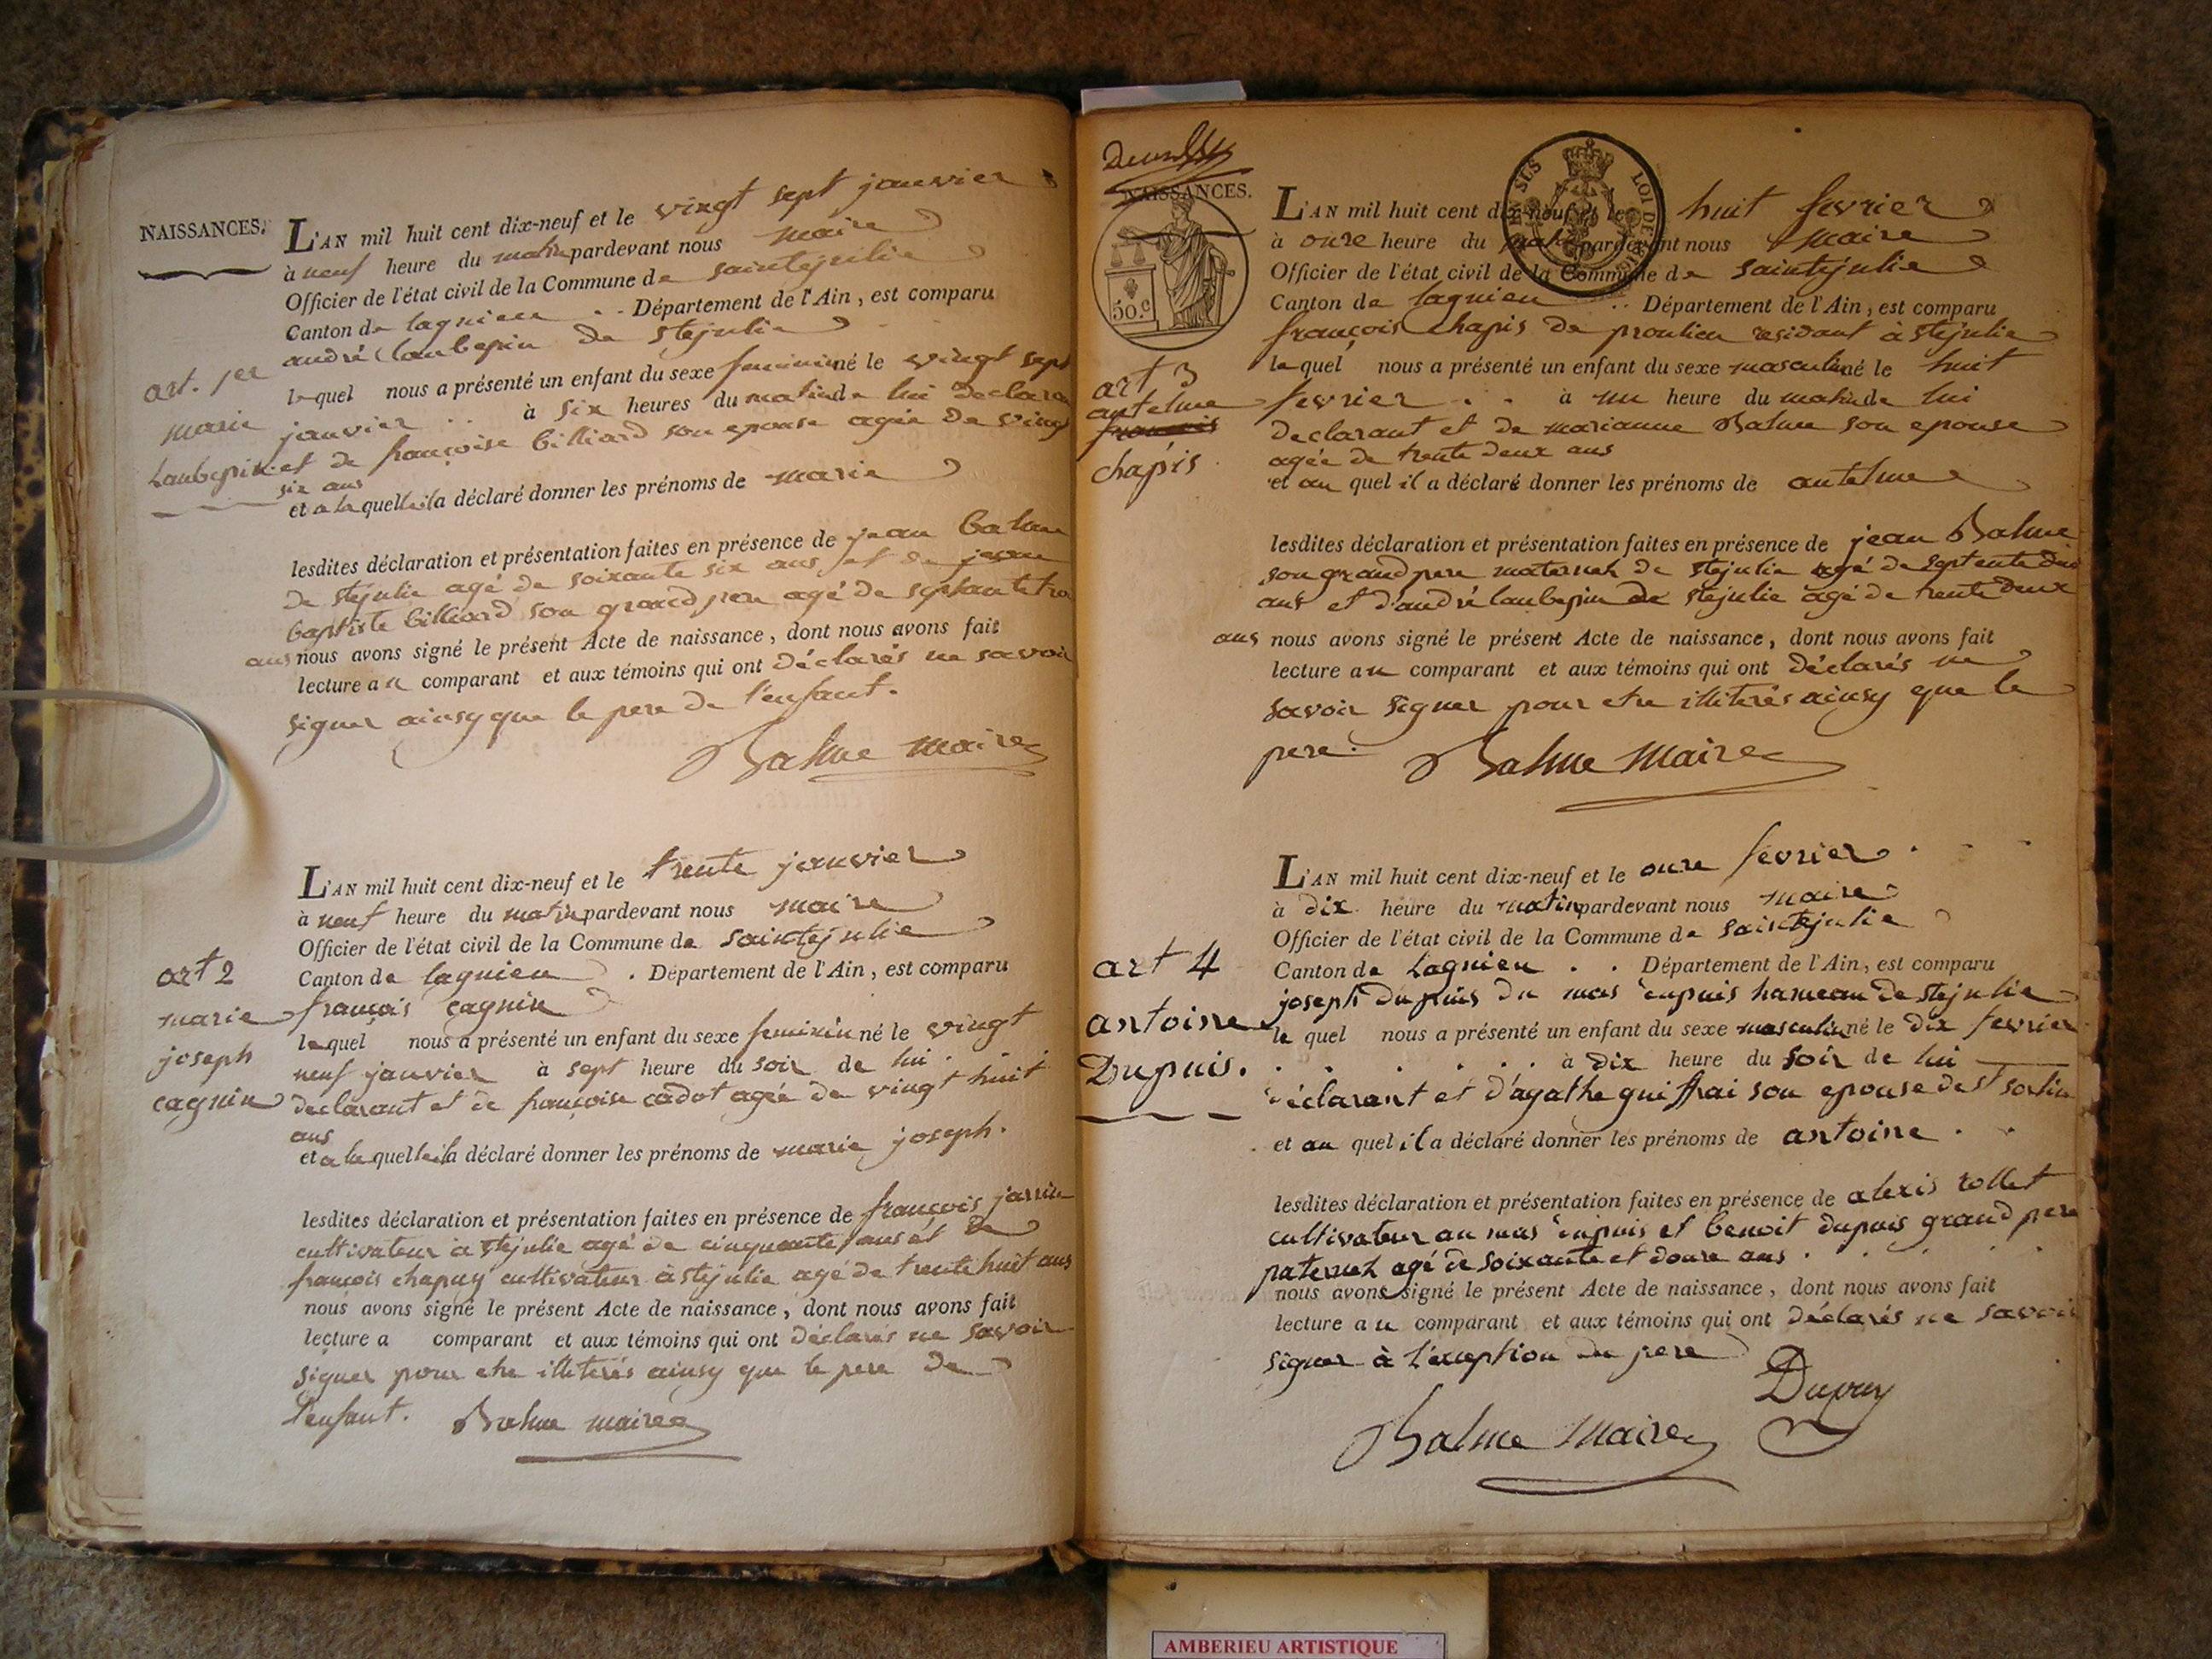 NAISSANCES.
L'AN mil huit cent dix-neuf et le vingt sept janvier
à neuf heure du matin pardevant nous maire
Officier de l'état civil de la Commune de saintejulie
Canton de lagnieu . . Département de l'Ain, est comparu
andré laubepin de stejulie
art. 1er
lequel nous a présenté un enfant du sexe feminin né le vingt sept
janvier . . à six heures du matin de lui declarant
marie
et de françoise billiard son epouse agée de vingt
Laubepin
six ans
et a laquelle il a déclaré donner les prénoms de marie
lesdites déclaration et présentation faites en présence de jean balme
de stejulie agé de soixante six ans et de jean
baptiste billiard son grand pere agé de septante trois
ans nous avons signé le présent Acte de naissance, dont nous avons fait
lecture au comparant et aux témoins qui ont déclarés ne savoir
signer ainsy que le pere de l'enfant.
Balme maire
L'AN mil huit cent dix-neuf et le trente janvier
à neuf heure du matin pardevant nous maire
Officier de l'état civil de la Commune de saintejulie
art 2
Canton de lagnieu . Département de l'Ain, est comparu
marie
françois cagnin
joseph
lequel nous a présenté un enfant du sexe feminin né le vingt
neuf janvier à sept heure du soir de lui
cagnin
declarant et de françoise cadot agée de vingt huit
ans
et a laquelle il a déclaré donner les prénoms de marie joseph.
lesdites déclaration et présentation faites en présence de françois jarrin
cultivateur à stejulie agé de cinquante ans et de
françois chapuy cultivateur à stejulie agé de trente huit ans
nous avons signé le présent Acte de naissance, dont nous avons fait
lecture a comparant et aux témoins qui ont déclarés ne savoir
signer pour etre illiterés ainsy que le pere de
l'enfant. Balme maire
NAISSANCES.
50.c
LOI DE
L'AN mil huit cent dix-neuf et le huit fevrier
à onze heure du matin pardevant nous maire
Officier de l'état civil de la Commune de saintejulie
Canton de lagnieu . . Département de l'Ain, est comparu
françois chapis de proulieu residant à stejulie
art 3
lequel nous a présenté un enfant du sexe masculin né le huit
antelme
fevrier . . à un heure du matin de lui
françois
declarant et de marianne Balme son epouse
chapis
agée de trente deux ans
et au quel il a déclaré donner les prénoms de antelme
lesdites déclaration et présentation faites en présence de jean Balme
son grand pere maternel de stejulie agé de septente deux
ans et d'andré laubepin de stejulie agé de trente deux
ans nous avons signé le présent Acte de naissance, dont nous avons fait
lecture au comparant et aux témoins qui ont déclarés ne
savoir signer pour etre illiterés ainsy que le
pere. Balme Maire
L'AN mil huit cent dix-neuf et le onze février
à dix heure du matin pardevant nous maire
Officier de l'état civil de la Commune de saintejulie
art 4
Canton de Lagnieu . . Département de l'Ain, est comparu
joseph Dupuis du mas dupuis hameau de stejulie
antoine
le quel nous a présenté un enfant du sexe masculin né le dix fevrier
Dupuis.
à dix heure du soir de lui
déclarant et d'agathe guiffrai son epouse de st sorlin
et au quel il a déclaré donner les prénoms de antoine
lesdites déclaration et présentation faites en présence de alexis rollet
cultivateur au mas dupuis et benoit dupuis grand pere
paternel agé de soixante et douze ans
nous avons signé le présent Acte de naissance, dont nous avons fait
lecture au comparant et aux témoins qui ont déclarés ne savoir
signer à l'exception du pere
Dupuy
Balme Maire
AMBERIEU ARTISTIQUE